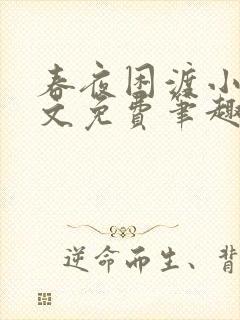 春夜困渡小
文免費筆趣
逆命而生、背